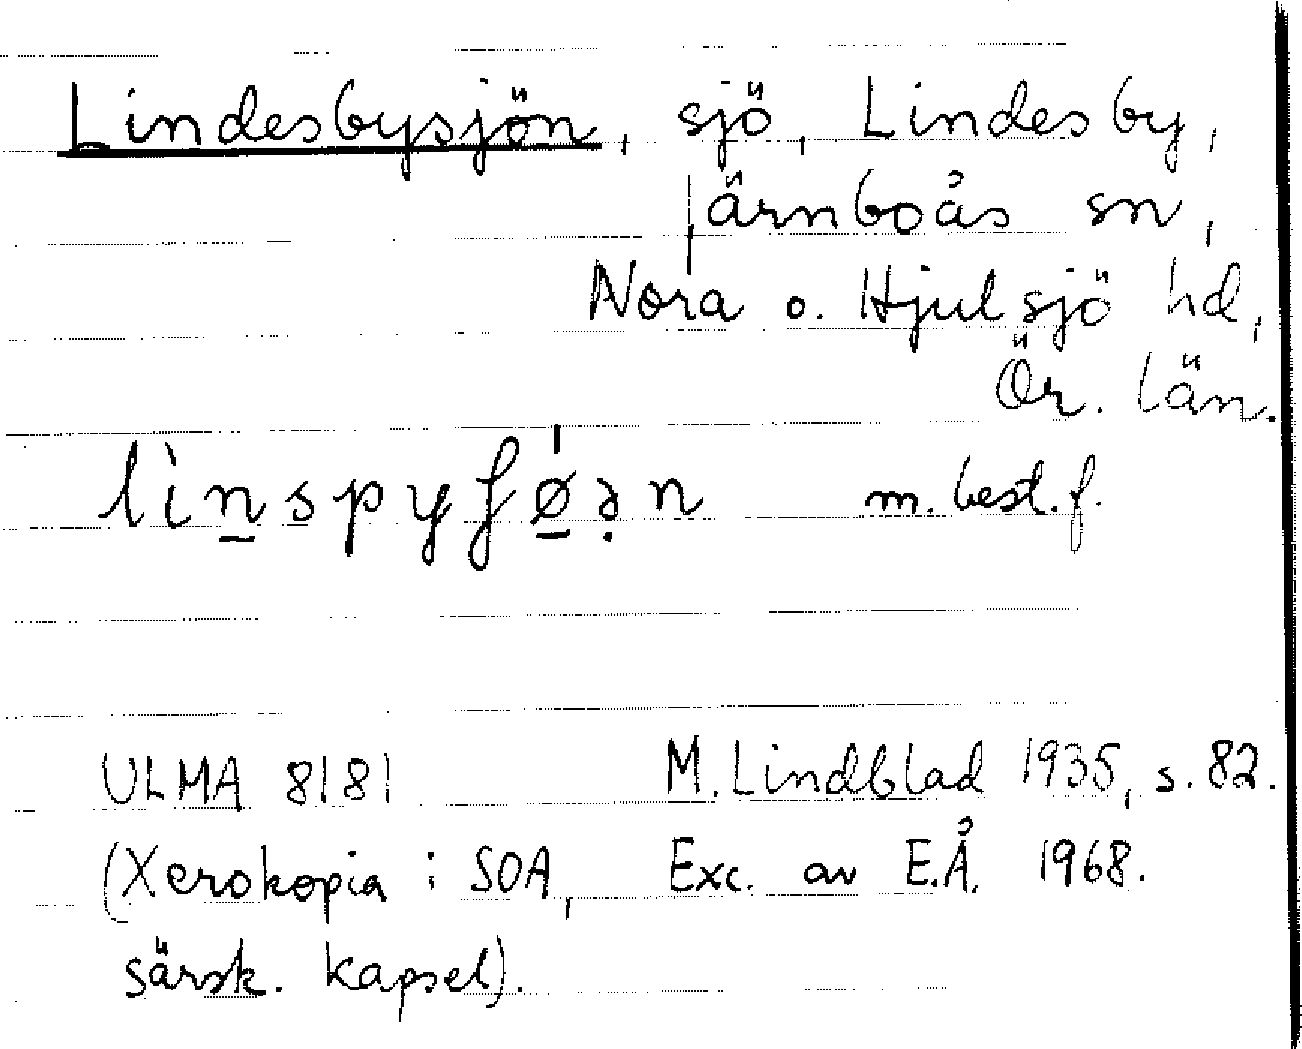 Lindesbysjön, sjö, Lindesby,
Järnboås sn,
Nora o. Hjulsjö hd,
Ör. län.
lìn̠spyʃǿ̠ə̣n m. best. f.
ULMA 8181 M. Lindblad 1935, s. 82.
(Xerokopia i SOA, Exc. av E.Å. 1968.
särsk. kapsel).